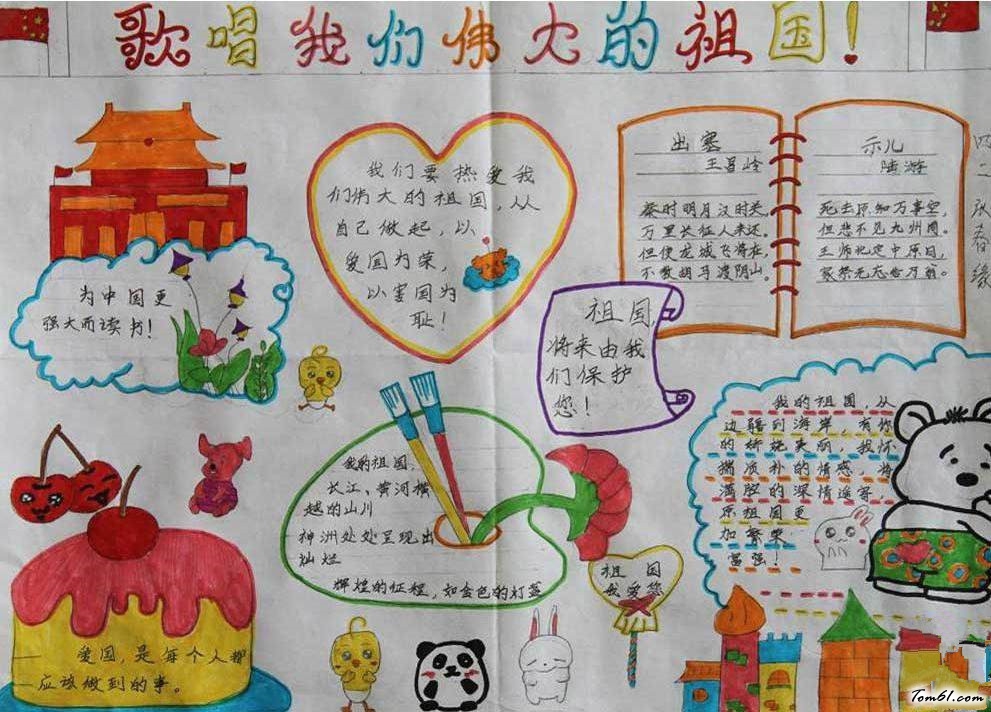 歌唱我们伟大的祖国!
我们要热爱我
们伟大的祖国,从
自己做起,以
爱国为荣,
以害国为
耻!
出塞
王昌岭
秦时明月汉时关,
万里长征人未还。
但使龙城飞将在,
不教胡马渡阴山。
示儿
陆游
死去原知万事空,
但悲不见九州同。
王师北定中原日,
家祭无忘告乃翁。
四二
春缘
为中国更
强大而读书!
祖国,
将来由我
们保护
您!
我的祖国,从
边疆到海岸,有你
的娇娆美丽,我怀
揣质朴的情感,将
满腔的深情遥寄,
原祖国更
加繁荣
富强!
我的祖国,
长江、黄河横
越的山川
神洲处处呈现出
灿烂
辉煌的征程,如金色的灯盏
祖国
我爱您
爱国,是每个人都
应该做到的事。
Tom61.com